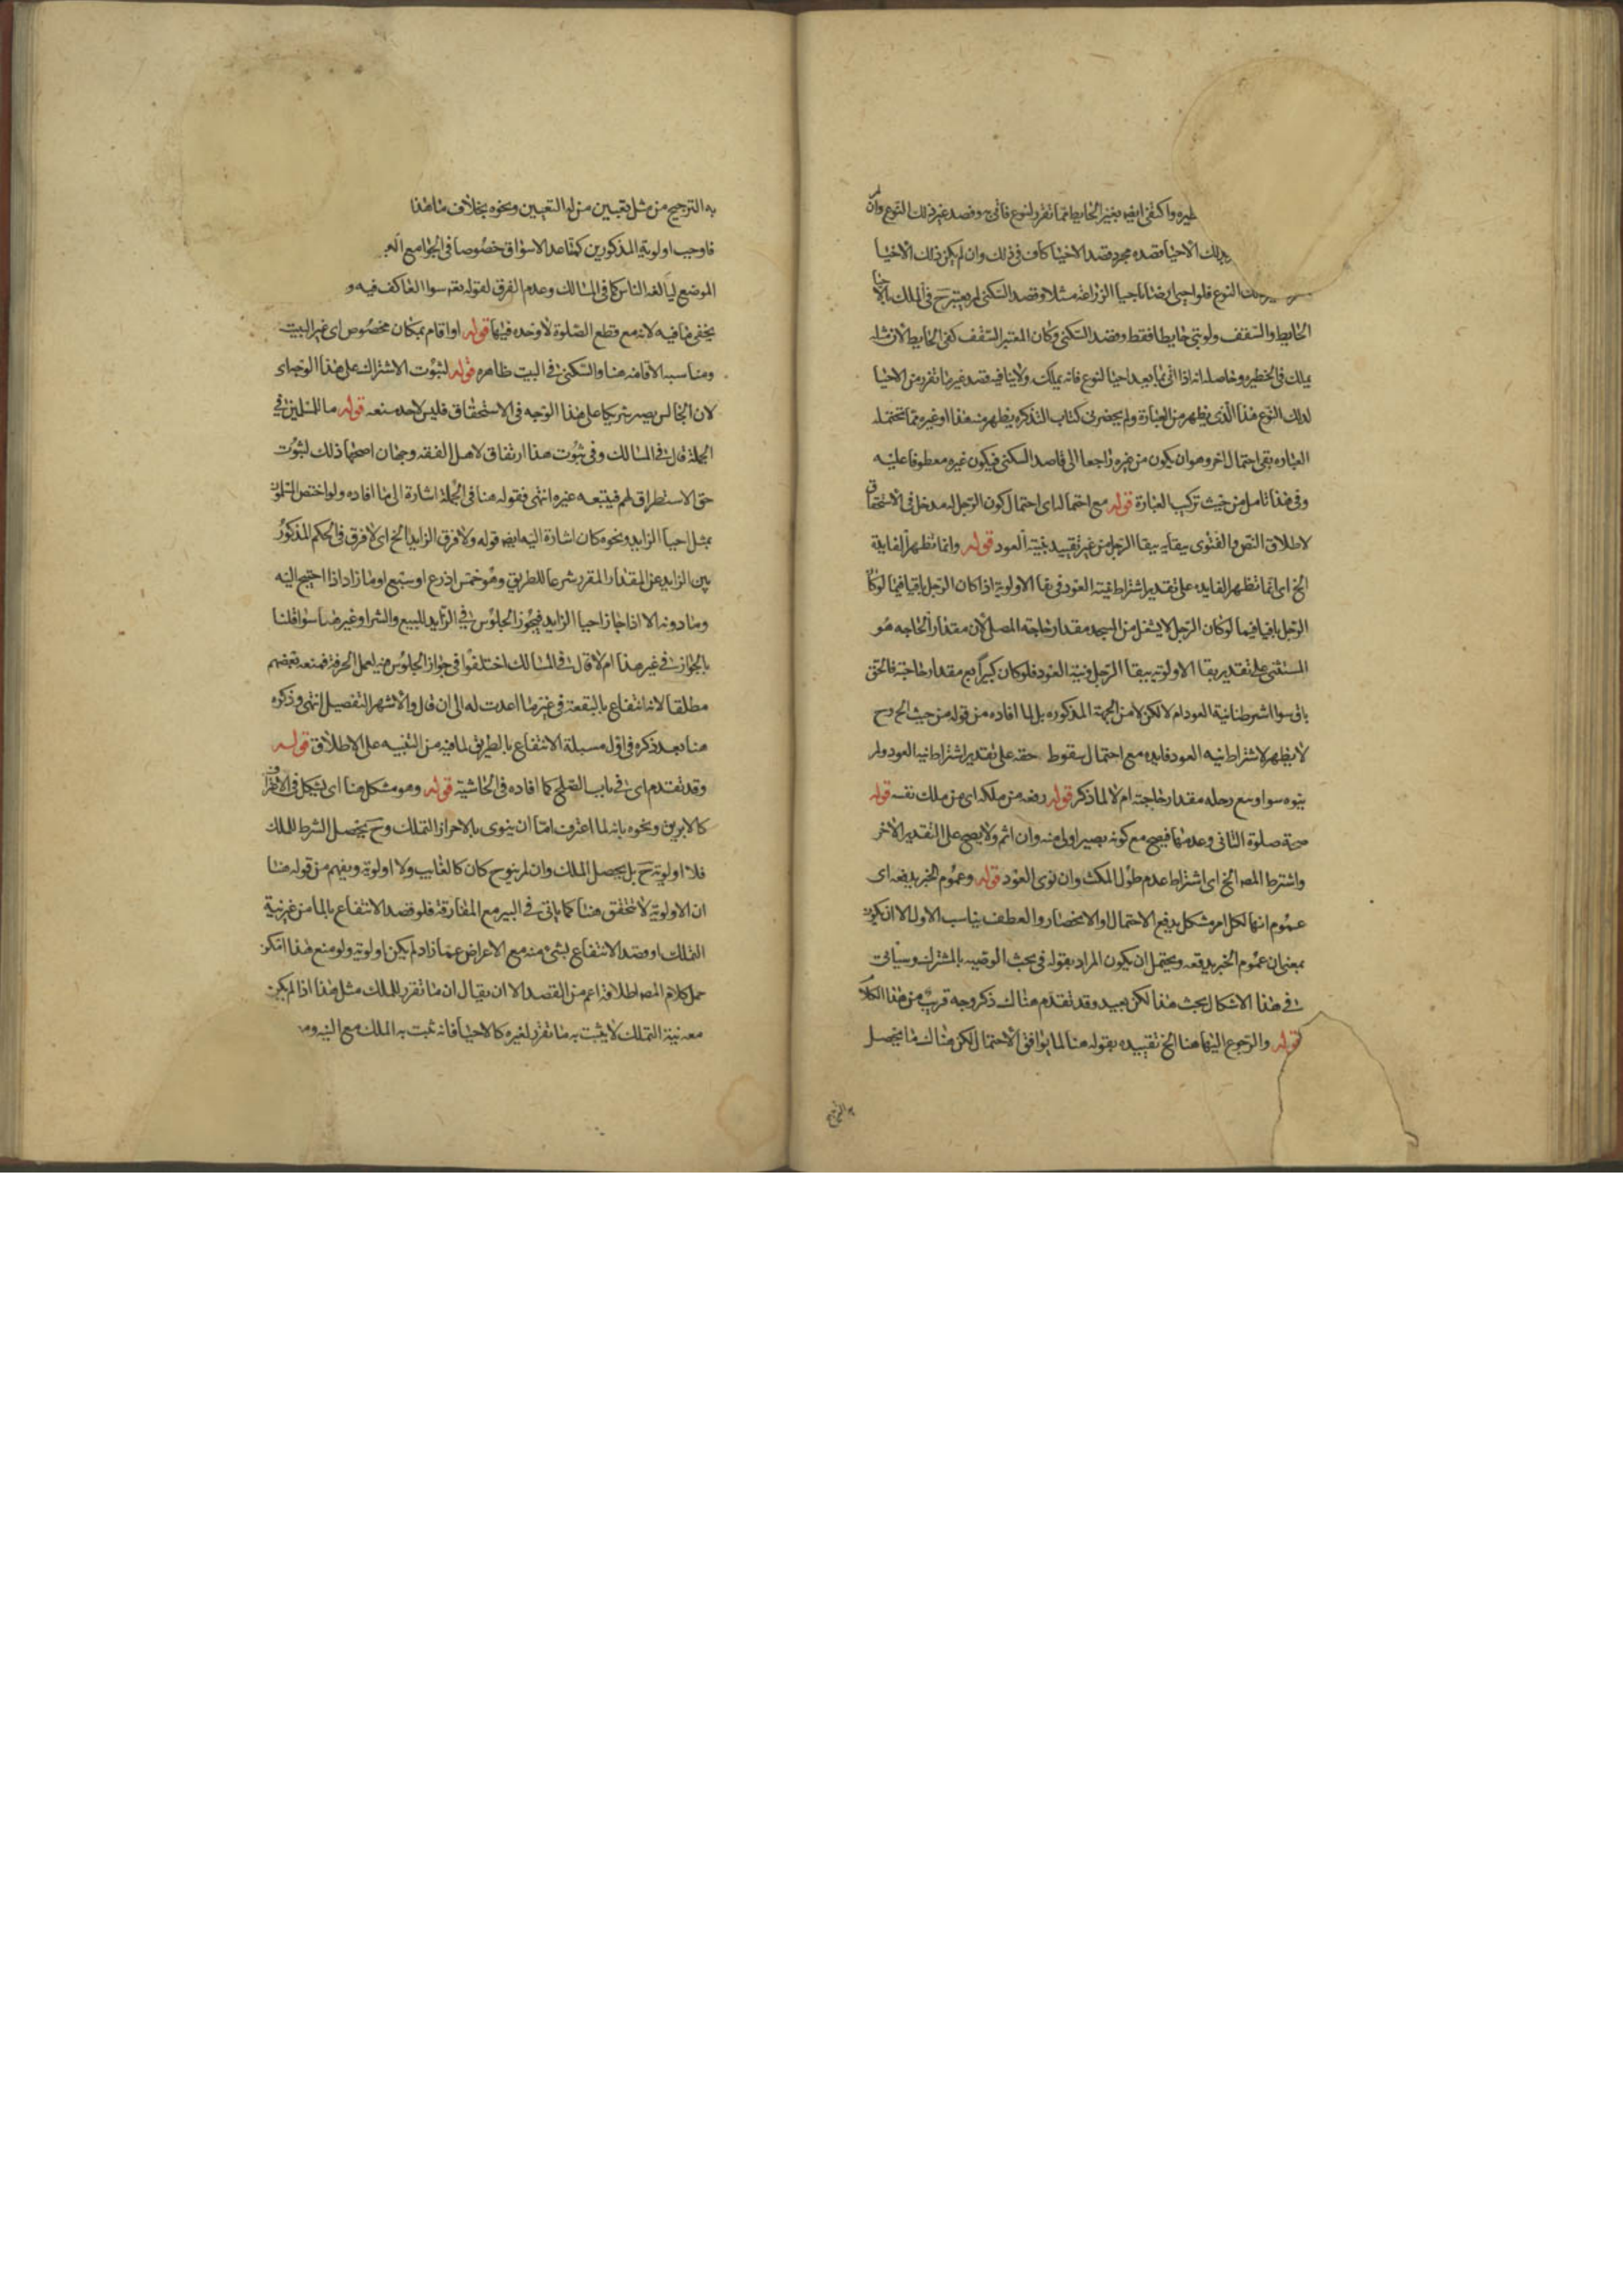 واكتفى ايضا بغير الحايط مما تقرر لنوع فاتى به وقصد غير ذلك النوع وان لم
الاحيا قصده مجرد قصد الاحيا كاف فى ذلك وان لم يكن ذلك الاحيا
النوع فلو احيى ارضا باحيا الزراعة مثلا وقصد السكنى لم يعتبر ح فى الملك بالاحيا
الحايط والسقف ولو بنى حايطا فقط وقصد السكنى وكان المعتبر السقف كفى الحايط لان مثله
يملك فى الحظيره وحاصله انه اذا اتى بما يعد احيا لنوع فانه يملك ولا ينافيه قصد غير ما تقرر من الاحيا
لذلك النوع هذا الذى يظهر من العبارة ولم يحضرنى كتاب التذكره يظهر منه هذا او غيره مما تحتمله
العباره بقى احتمال اخر وهو ان يكون من غيره راجعا الى قاصد السكنى فيكون غيره معطوفا عليه
وفى هذا تامل من حيث تركيب العبارة قوله مع احتماله اى احتمال كون الرحل له مدخل فى الاستحقاق
لاطلاق النص والفتوى ببقايه ببقا الرحل من غير تقييد بنية العود قوله وانما تظهر الفايدة
الخ اى انما تظهر الفايده على تقدير اشتراط نية العود فى بقا الاولوية اذا كان الرحل باقيا فيما لو كان
الرحل باقيا فيما لو كان الرحل لا يشغل من المسجد مقدار حاجته المصلى لان مقدار الحاجه هو
المستثنى على تقدير بقا الاولويه ببقا الرحل ونية العود فلو كان كبيرا يسع مقدار حاجته فالحق
باق سوا اشترطنا نية العود ام لا لكن لا من الجهة المذكوره بل لما افاده من قوله من حيث الخ وح
لا يظهر لاشتراط نيه العود فايده مع احتمال سقوط حقه على تقدير اشتراط نية العود ولم
ينوه سوا وسع رحله مقدار حاجته ام لا لما ذكر قوله رضه من ملكه اى من ملك نفسه قوله
صحة صلوة الثانى وعدمها فيصح مع كونه يصير اولى منه وان اثم ولا يصح على التقدير الاخر
واشترط المصـ الخ اى اشتراط عدم طول المكث وان نوى العود قوله وعموم الخبر يدفعه اى
عموم انها لكل امر مشكل يدفع الاحتمال او الانحصار والعطف يناسب الاول الا ان يكون
بمعنى ان عموم الخبر يدفعه ويحتمل ان يكون المراد بقوله فى بحث الوصيه بالمشترك وسياتى
فى هذا الاشكال بحث هذا لكن بعيد وقد تقدم هناك ذكر وجه قريب من هذا الكلام
قوله والرجوع اليها هنا الخ تقييده بقوله هنا لما يوافق الاحتمال لكن هناك ما يحصل
به الترجيح
به الترجيح من مثل تعيين من له التعيين ونحوه بخلاف ما هنا
فاوجب اولوية المذكورين كمقاعد الاسواق خصوصا فى الجوامع
الموضع ليالفه الناس كما فى المسالك وعدم الفرق لقوله تعـ سوا العاكف فيه و
يخفى ما فيه لانه مع قطع الصلوة لا وحده فيها قوله او اقام بمكان مخصوص اى غير البيت
ومناسبه الاقامه هنا والسكنى فى البيت ظاهره قوله لثبوت الاشتراك على هذا الوجه اى
لان الجالس يصير شريكا على هذا الوجه فى الاستحقاق فليس لاحد منعه قوله ما للمسلمين فى
الجملة قال فى المسالك وفى ثبوت هذا ارتفاق لاهل الفقه وجهان اصحهما ذلك لثبوت
حق الاستطراق لهم فيتبعه غيره انتهى فقوله هنا فى الجملة اشارة الى ما افاده ولو اختص السلوك
بمثل احيا الزايد ونحوه كان اشارة اليه ايضا قوله ولا فرق الزايد الخ اى لا فرق فى الحكم المذكور
بين الزايد عن المقدار المقرر شرعا للطريق وهو خمس اذرع او سبع او ما زاد اذا احتيج اليه
وما دونه الا اذا جاز احيا الزايد فيجوز الجلوس فى الزايد للبيع والشرا وغيرهما سوا قلنا
بالجواز فى غير هذا ام لا قال فى المسالك اختلفوا فى جواز الجلوس منه لعمل الحرفة فمنعه بعضهم
مطلقا لانه انتفاع بالبقعة فى غير ما اعدت له الى ان قال والاشهر التفصيل انتهى وذكره
هنا بعد ذكره فى اول مسيلة الانتفاع بالطريق لما فيه من التنبيه على الاطلاق قوله
وقد تقدم اى فى باب الصلح كما افاده فى الحاشية قوله وهو مشكل هنا اى يشكل فى الافتراق
كالابريق ونحوه بانه لما اعترف اما ان ينوى بالاحراز التملك وح يحصل الشرط للملك
فلا اولوية ح بل يحصل الملك وان لم ينو ح كان كالغايب ولا اولوية ويفهم من قوله هنا
ان الاولوية لا تتحقق هنا كما ياتى فى البير مع المفارقة فلو قصد الانتفاع بالما من غير نية
التملك او قصد الانتفاع بشى منه مع الاعراض عما زاد لم يكن اولوية ولو منع هذا امكن
حمل كلام المصـ اطلاقه اعم من القصد الا ان يقال ان ما تقرر للملك مثل هذا اذا لم يكن
معه نية التملك لا يثبت به ما تقرر لغيره كالاحيا فانه ثبت به الملك مع النيه